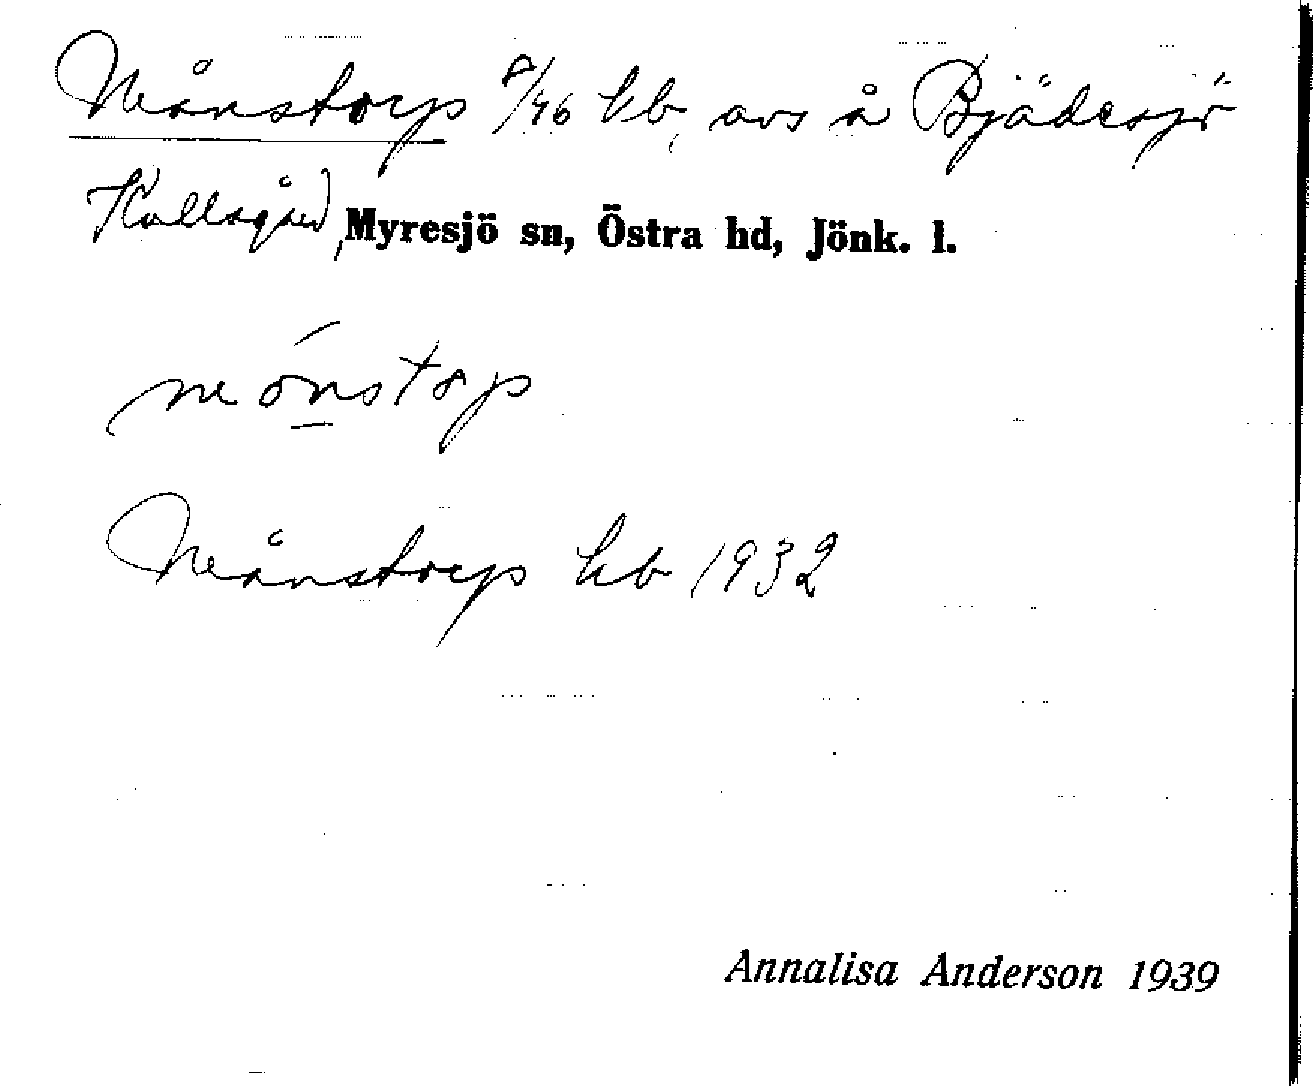 Månstorp 8/46 hb, avs å Bjädesjö
Kullsgård, Myresjö sn, Östra hd, Jönk. l.
mónstop
Månstorp hb 1932
Annalisa Anderson 1939